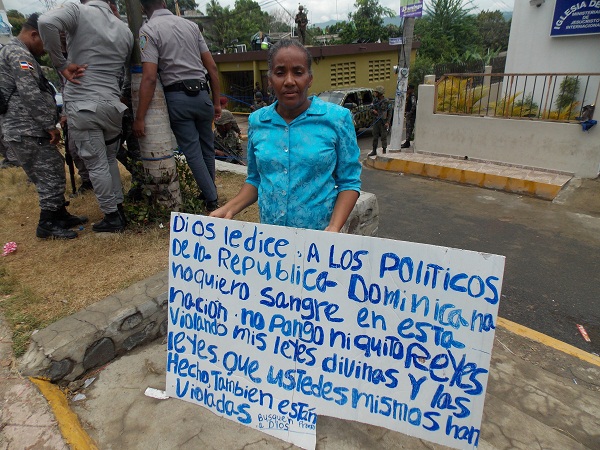 IGLESIA DE
Dios le dice. A LOS POLITICOS
De la Republica Dominicana
no quiero sangre en esta
nación. no pongo ni quito Reyes
Violando mis leyes divinas y las
leyes que ustedes mismos han
Hecho, Tambien están
Violadas
Busquen
a DIOS